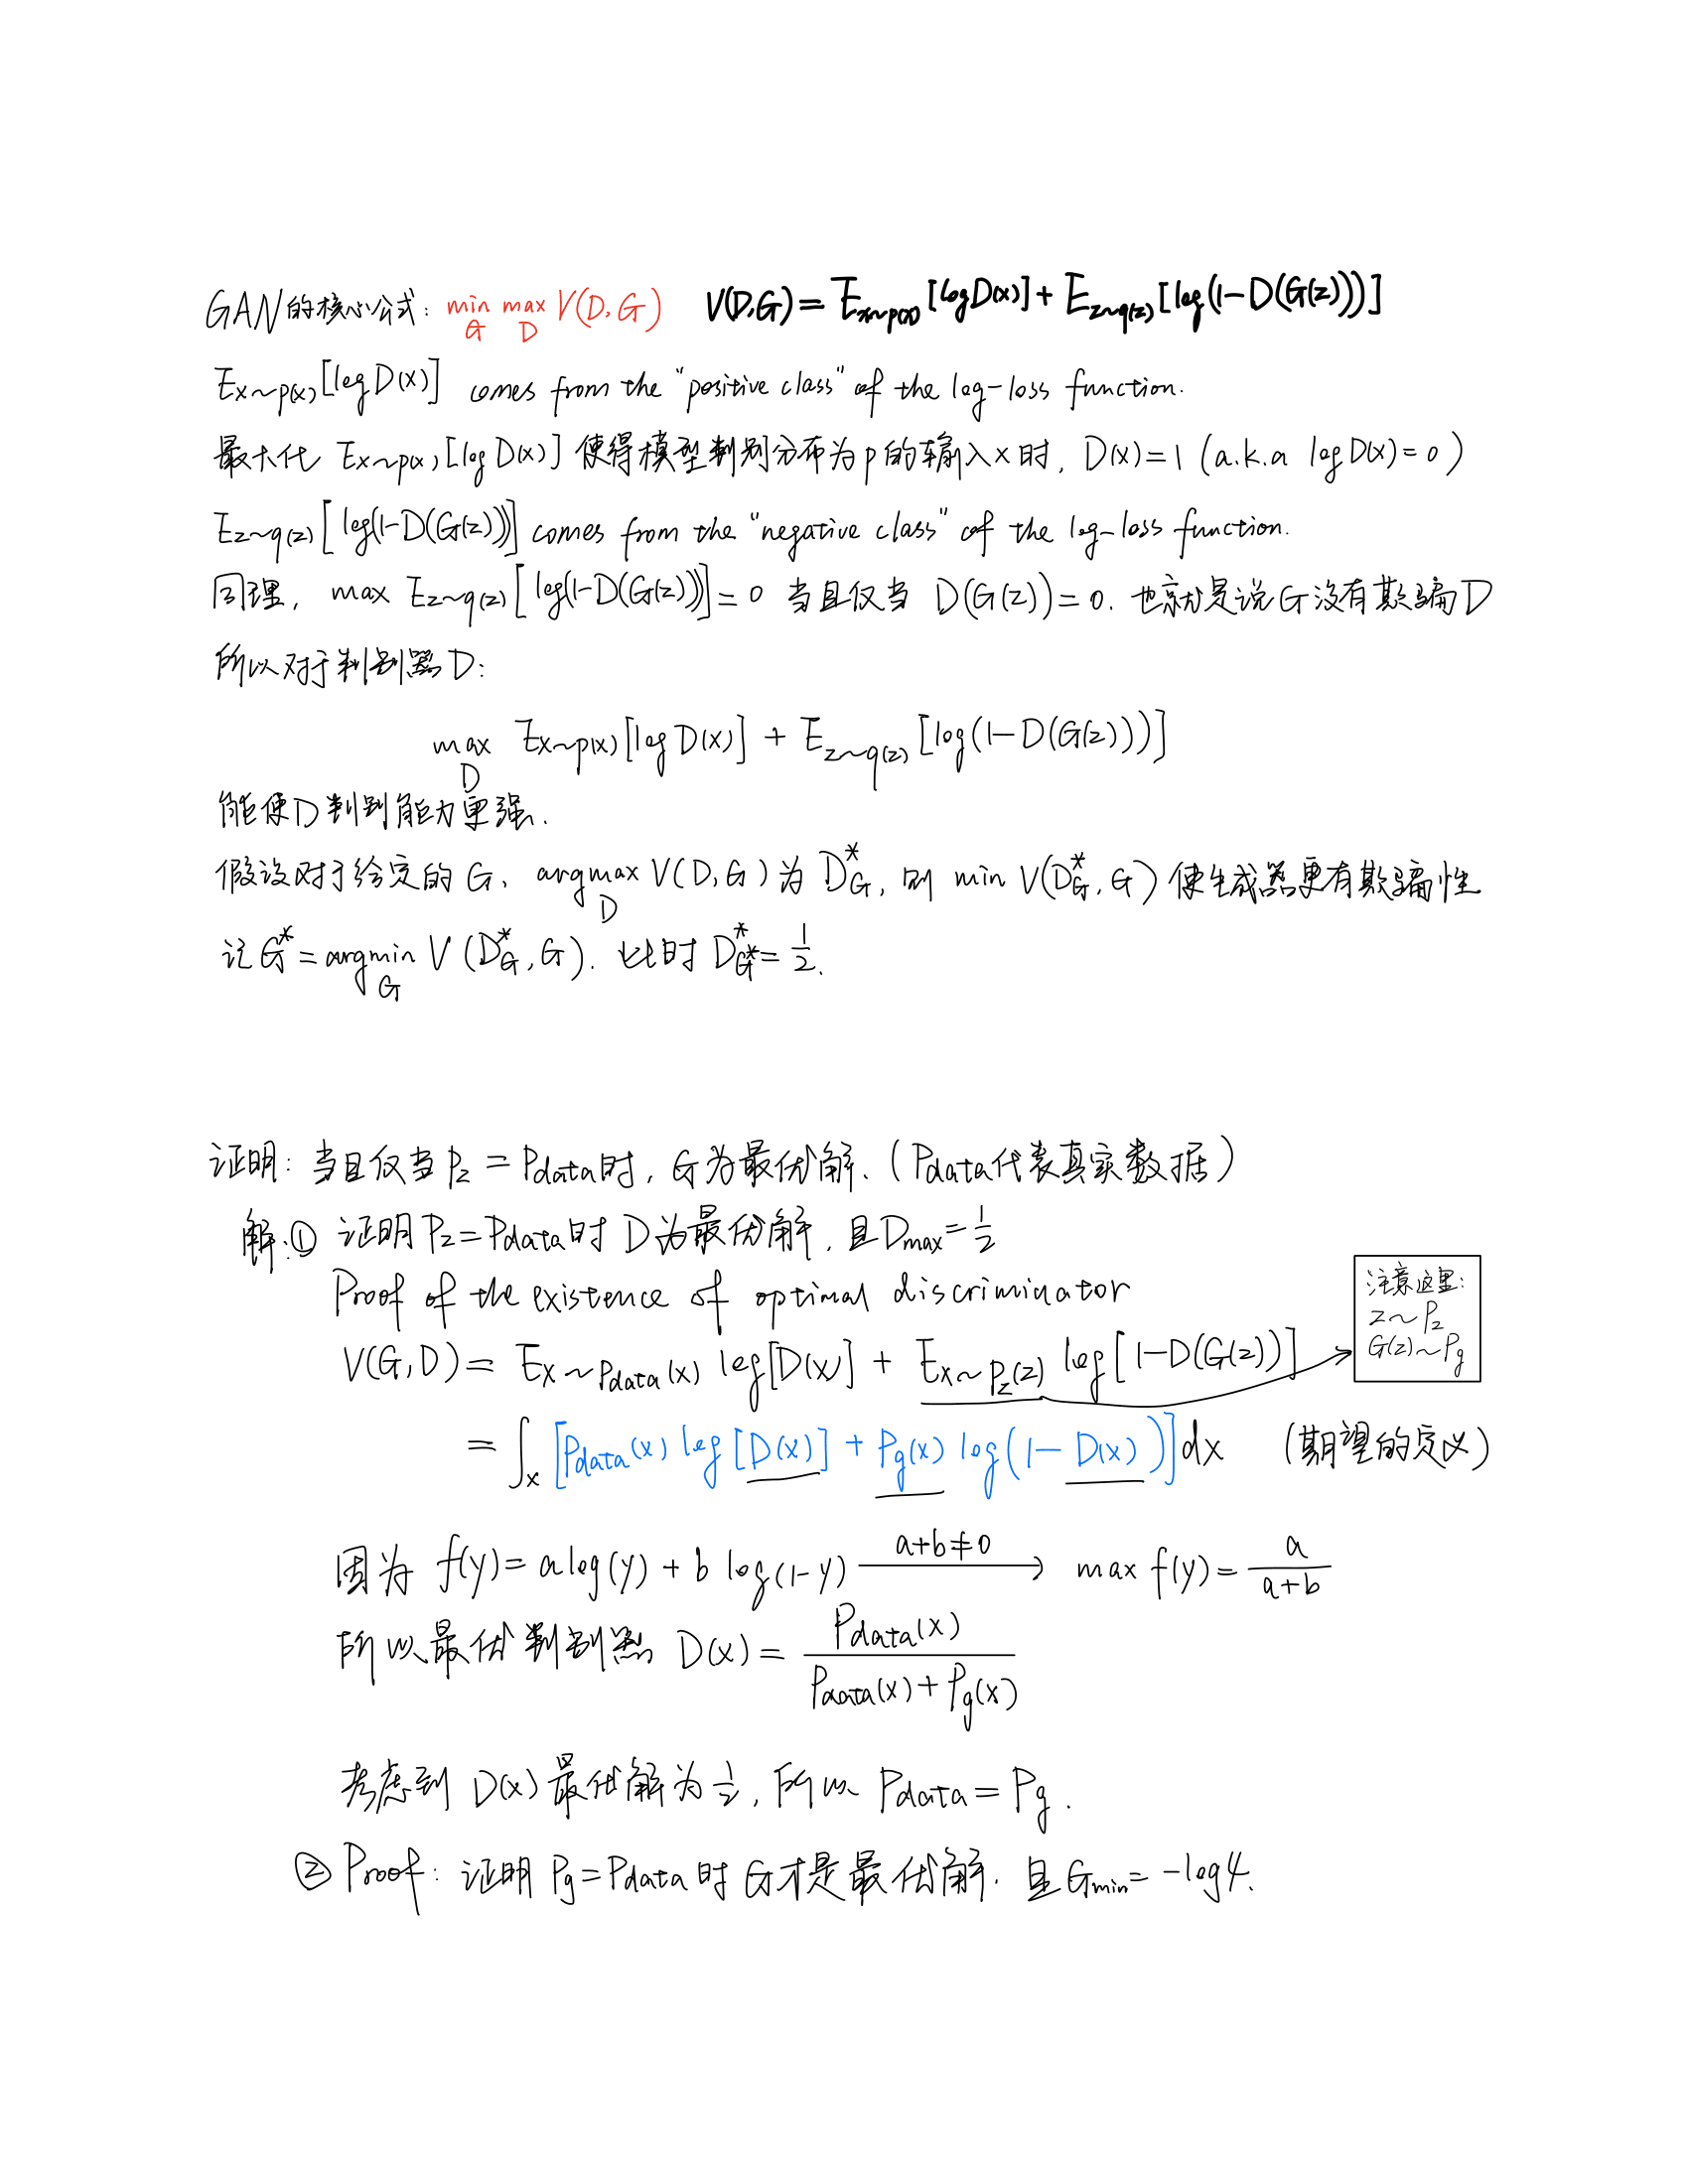 GAN的核心公式: min_G max_D V(D,G) V(D,G) = E_{x~p(x)}[log D(x)] + E_{z~q(z)}[log(1-D(G(z)))]
E_{x~p(x)}[log D(x)] comes from the "positive class" of the log-loss function.
最大化 E_{x~p(x)}[log D(x)] 使得模型判别分布为p的输入x时, D(x)=1 (a.k.a log D(x)=0)
E_{z~q(z)}[log(1-D(G(z)))] comes from the "negative class" of the log-loss function.
同理, max E_{z~q(z)}[log(1-D(G(z)))]=0 当且仅当 D(G(z))=0. 也就是说G没有欺骗D
所以对于判别器D:
max_D E_{x~p(x)}[log D(x)] + E_{z~q(z)}[log(1-D(G(z)))]
能使D判别能力更强.
假设对于给定的G, argmax_D V(D,G)为 D^*_G, 则 min V(D^*_G, G) 使生成器更有欺骗性
记 G^* = argmin_G V(D^*_G, G). 此时 D^*_{G^*} = 1/2.
证明: 当且仅当 P_z = P_data时, G为最优解. (P_data代表真实数据)
解:① 证明 P_z=P_data时 D为最优解, 且D_max=1/2
Proof of the existence of optimal discriminator
V(G,D) = E_{x~P_data(x)} log[D(x)] + E_{x~P_z(z)} log[1-D(G(z))]
注意这里:
z~P_z
G(z)~P_g
= ∫_x [P_data(x) log[D(x)] + P_g(x) log(1-D(x))]dx (期望的定义)
因为 f(y)=a log(y) + b log(1-y) a+b≠0 → max f(y) = a/(a+b)
所以最优判别器 D(x) = P_data(x)/(P_data(x)+P_g(x))
考虑到 D(x)最优解为1/2, 所以 P_data = P_g.
② Proof: 证明 P_g=P_data时 G才是最优解. 且 G_min = -log4.